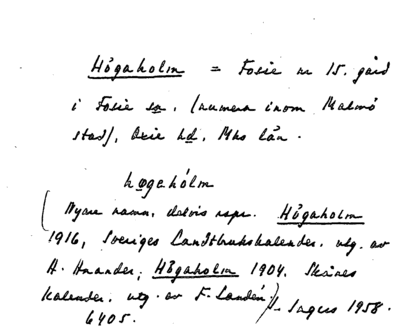 Högaholm = Fosie nr 15. gård
i Fosie sn. (numera inom Malmö
stad), Oxie hd, Mhs län.
høgahólm
(Nyare namn, delvis rspr. Högaholm
1916, Sveriges Landtbrukskalender. utg. av
H. Hnander; Högaholm 1904. Skånes
kalender. utg. av F. Landén)
I. Ingers 1958.
6405.